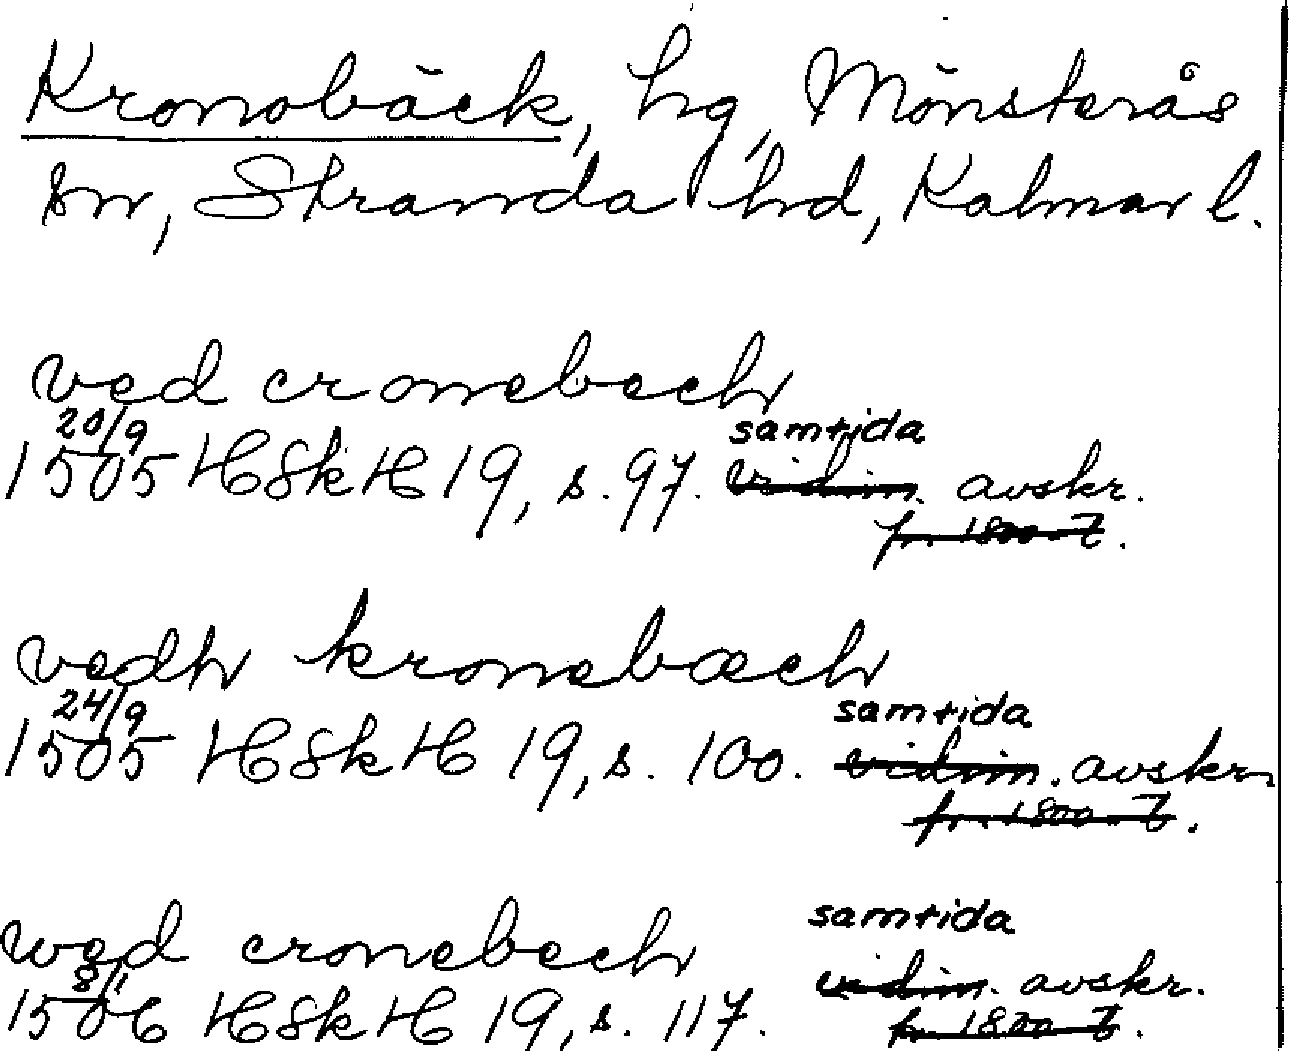 Kronobäck, hg, Mönsterås
sn, Stranda hd, Kalmar l.
ved cronebech
20/9
samtida
1505 HSkH 19, s. 97. vidim. avskr.
fr. 1800-t.
vedh kronebæch
24/9
samtida
1505 HSkH 19, s. 100. vidim. avskr.
fr. 1800-t.
wed cronebech
samtida
8/1
vidim. avskr.
1506 HSkH 19, s. 117.
fr. 1800-t.